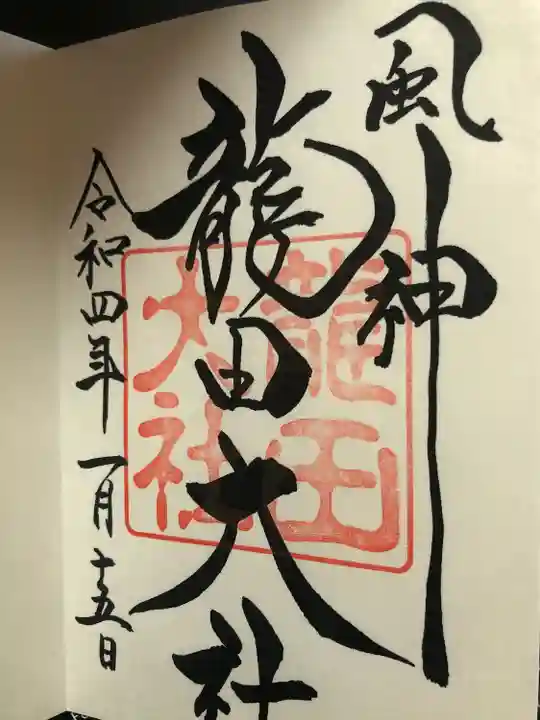 風神
龍田大社
龍田
大社
令和四年一月十五日